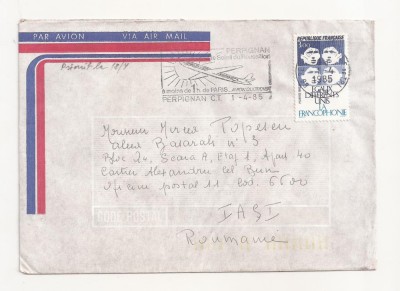 PAR AVION VIA AIR MAIL
PERPIGNAN
à moins de 1 h. de PARIS
PERPIGNAN C.T. 1-4-85
RÉPUBLIQUE FRANÇAISE
1985
UNIS
LA
FRANCOPHONIE
Monsieur Mircea Popescu
Aleea Basarabi n° 3
Bloc 2a, Scara A, Etaj 1, Apart 40
Cartier Alexandru cel Bun
Oficiu postal 11 Cod. 6600
IAŞI
Roumanie